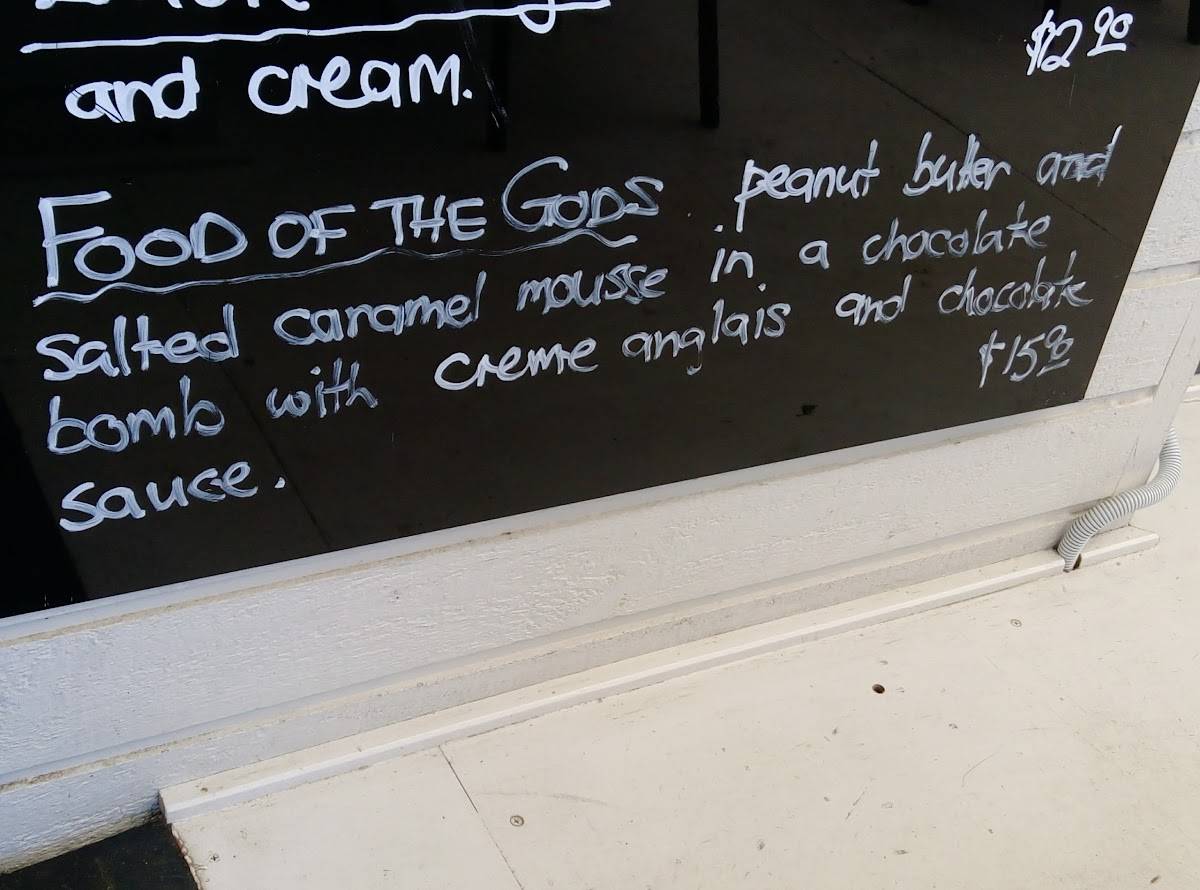 and cream.
$12.90
FOOD OF THE GODS . peanut butter and
salted caramel mousse in a chocolate
bomb with creme anglais and chocolate
sauce.
$15.90